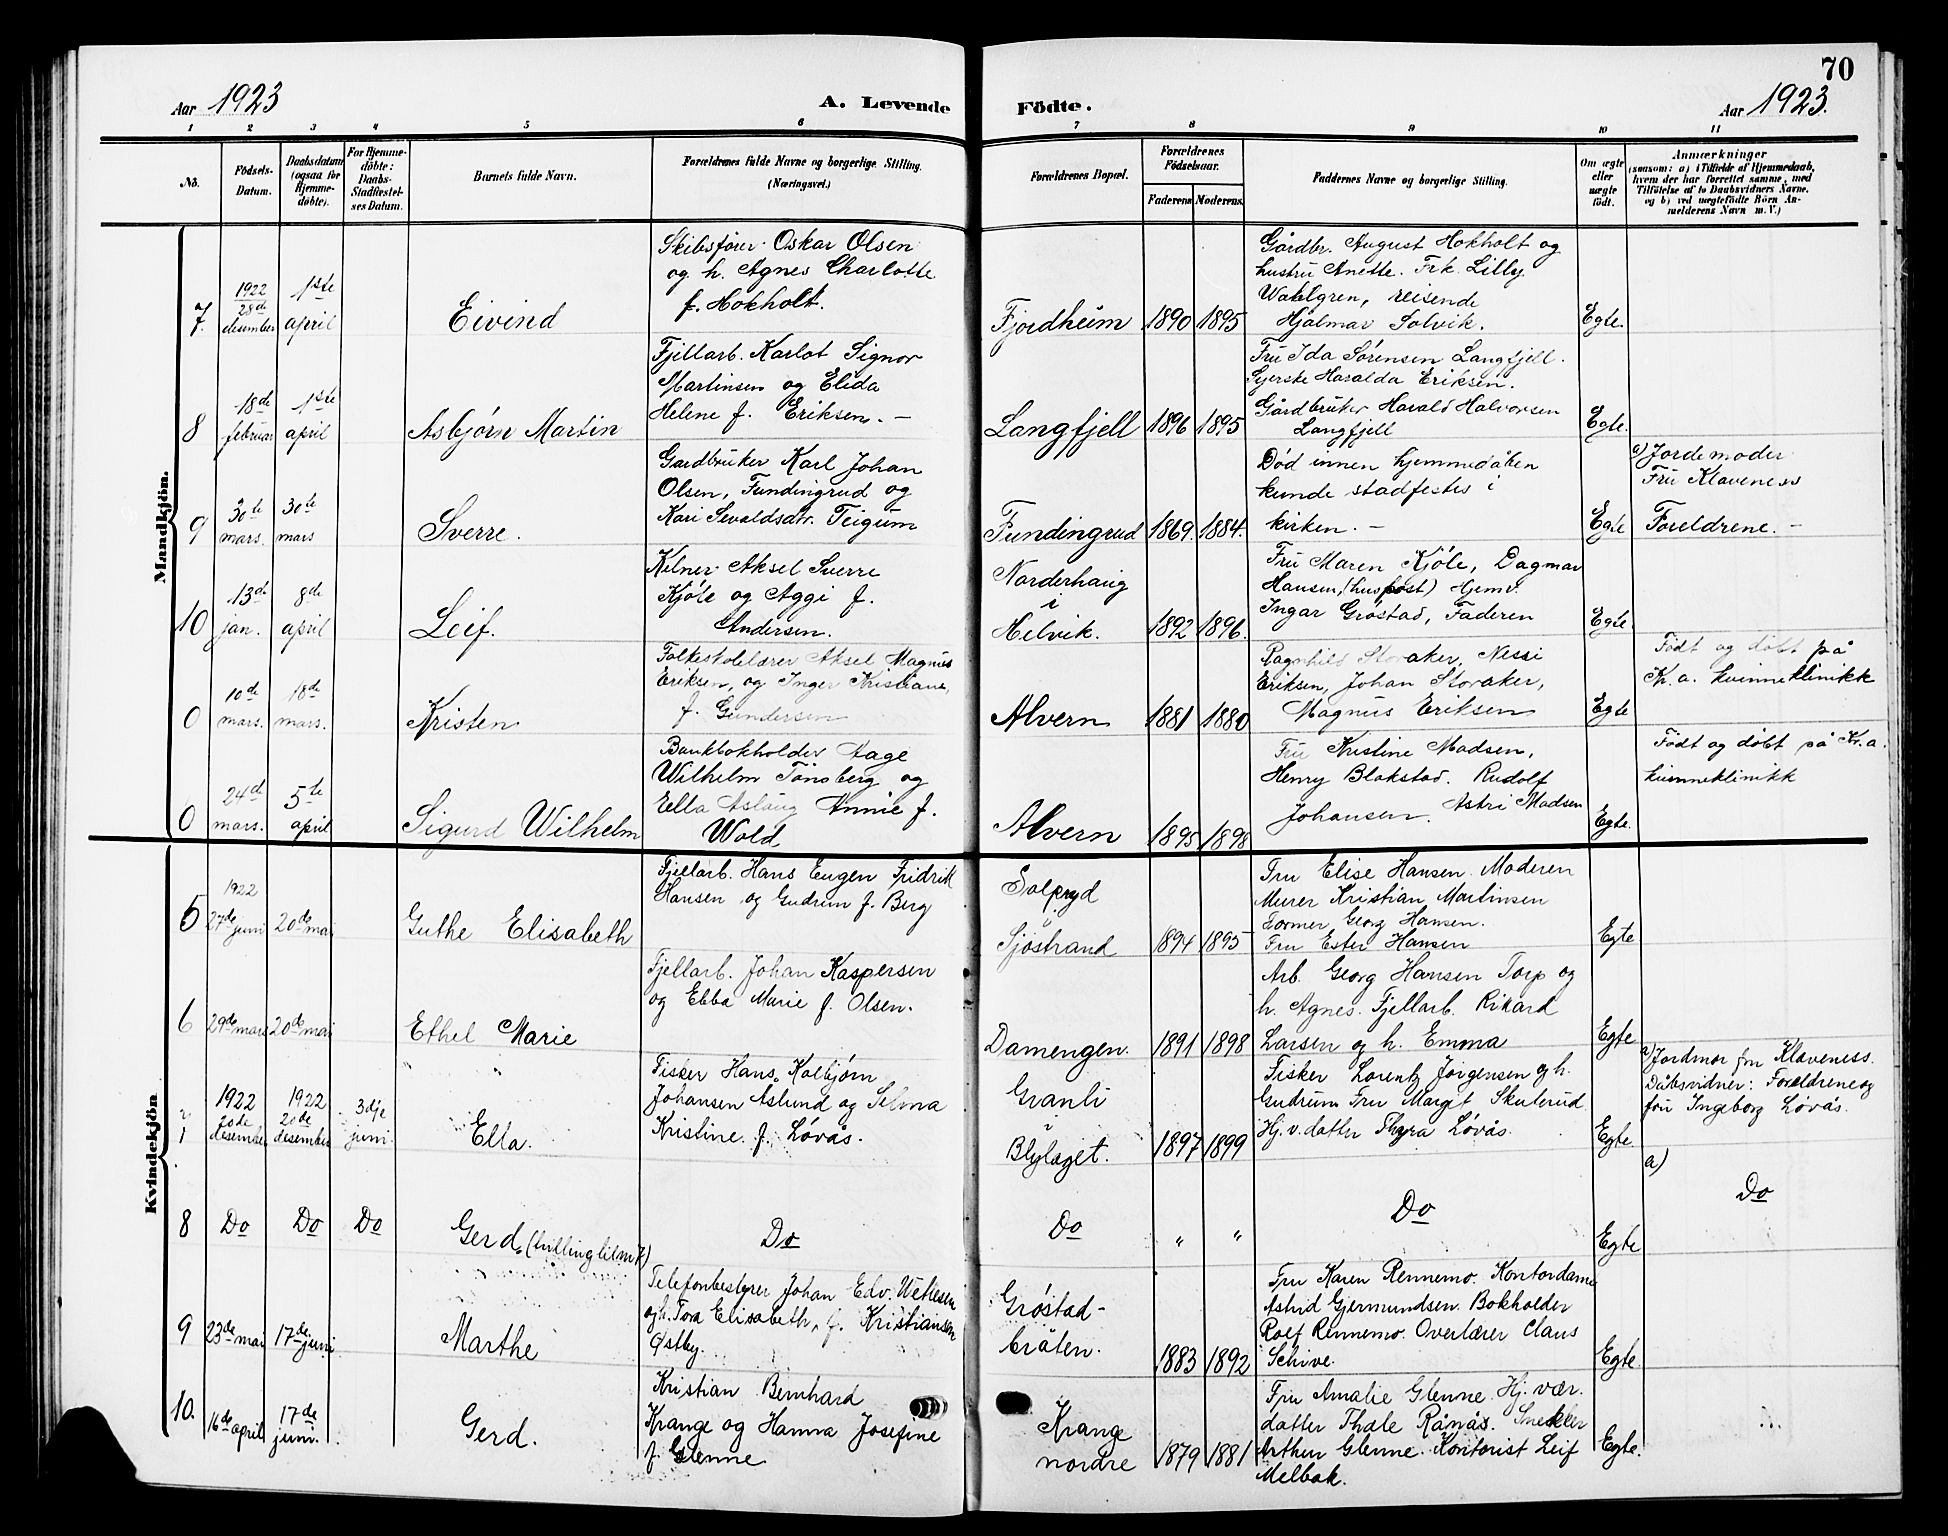 70
Aar 1923
A. Levende Födte.
Aar 1923.
1 2 3 4 5 6 7 8 9 10 11
No.
Födsels-
Datum.
Daabsdatum
(ogsaa for
Hjemme-
döbte).
For Hjemme-
döbte:
Daabs-
Stadfestel-
ses Datum.
Barnets fulde Navn.
Forældrenes fulde Navne og borgerlige Stilling.
(Næringsvei.)
Forældrenes Bopæl.
Forældrenes
Födselsaar.
Faderens Moderens.
Faddernes Navne og borgerlige Stilling.
Om ægte
eller
uægte
födt.
Anmærkninger
(saasom: a) i Tilfælde af Hjemmedaab,
hvem der har forrettet samme, med
Tilföielse af to Daabsvidners Navne,
og b) ved uegtefödte Börn An-
melderens Navn m. V.)
Mandkjön.
7.
1922
28de
desember
1ste
april
Eivind
Skibsfører Oskar Olsen
og h. Agnes Charlotte
f. Hokholt.
Fjordheim
1890 1895
Gårdbr. August Hokholt og
hustru Anette. Frk. Lilly
Wahlgren, reisende
Hjalmar Solvik.
Egte.
8
18de
februar
1ste
april
Asbjørn Martin
Fjellarb. Karlot Signor
Martinsen og Elida
Helene f. Eriksen. –
Langfjell
1896 1895
Fru Ida Sørensen Langfjell.
Syerske Haralda Eriksen.
Gårdbruker Harald Halvorsen
Langfjell
Egte.
9
30te
mars.
30te
mars
Sverre.
Gardbruker Karl Johan
Olsen, Fundingrud og
Kari Sevaldsdtr. Teigum
Fundingrud
1869. 1884.
Død innen hjemmedåben
kunde stadfestes i
kirken. –
Egte
a) Jordemoder
Fru Klaveness
Foreldrene. –
10
13de
jan.
8de
april
Leif.
Kelner Aksel Sverre
Kjøle og Aggi f.
Andersen.
Norderhaug
i
Helvik.
1892 1896.
Fru Maren Kjøle, Dagmar
Hansen, (huspost) Hjemv.
Ingar Grøstad, Faderen
Egte
0
10de
mars.
18de
mars.
Kristen
Folkeskolelærer Aksel Magnus
Eriksen, og Inger Kristiane,
f. Gundersen
Alvern
1881 1880
Ragnhild Storaker, Nessi
Eriksen, Johan Storaker,
Magnus Eriksen
Egte
Født og døbt på
Kr.a. kvinneklinikk
0
24de
mars.
5te
april
Sigurd Wilhelm
Bankbokholder Aage
Wilhelm Tönsberg og
Ella Aslaug Annie f.
Wold
Alvern
1895 1898
Fru Kristine Madsen,
Henry Blakstad. Rudolf
Johansen. Astri Madsen
Egte.
Født og døbt på Kr.a.
kvinneklinikk
Kvindekjön
5
1922
27de juni
20de mai
Guthe Elisabeth
Fjellarb. Hans Eugen Fridrik
Hansen og Gudrun f. Berg
Solpryd
Sjöstrand
1894 1895
Fru Elise Hansen Moderen
Murer Kristian Martinsen
Former Georg Hansen.
Fru Ester Hansen
Egte
6
29de mars
20de mai
Ethel Marie
Fjellarb. Johan Kaspersen
og Ebba Marie f. Olsen.
Damengen.
1891 1898
Arb. Georg Hansen Torp og
h. Agnes. Fjellarb. Rikard
Larsen og h. Emma
Egte
1922
20de
desember
1922
20de
desember
3dje
juni.
Ella.
Fisker Hans Kolbjørn
Johansen Aslund og Selma
Kristine f. Løvås.
Granli
i
Blylaget.
1897 1899
Fisker Lorentz Jørgensen og h.
Gudrun Fru Margit Skuterud
Hj. v. datter Thyra Løvås.
Egte
a) Jordmor fru Klaveness.
Dåbsvidner: Foreldrene og
fru Ingeborg Løvås.
8
Do
Do
Do
Gerd. (tvilling til nr 7)
Do
Do
" "
Do
Egte
a)
Do
9
23de mai
17de juni
Marthe
Telefonbestyrer Johan Edv. Wetlesen
og h. Tora Elisabeth, f. Kristiansen
Østby.
Grøstad-
bråten.
1883 1892
Fru Karen Rennemo. Kontordame
Astrid Gjermundsen. Bokholder
Rolf Rennemo. Overlærer Claus
Schive.
Egte
10.
16de april
17de
juni.
Gerd.
Kristian Bernhard
Krange og Hanna Josefine
f. Glenne
Krange
nordre
1879 1881
Fru Amalie Glenne. Hj. vær.
datter Thale Rånås. Snekker
Arthur Glenne. Kontorist Leif
Melbak.
Egte.